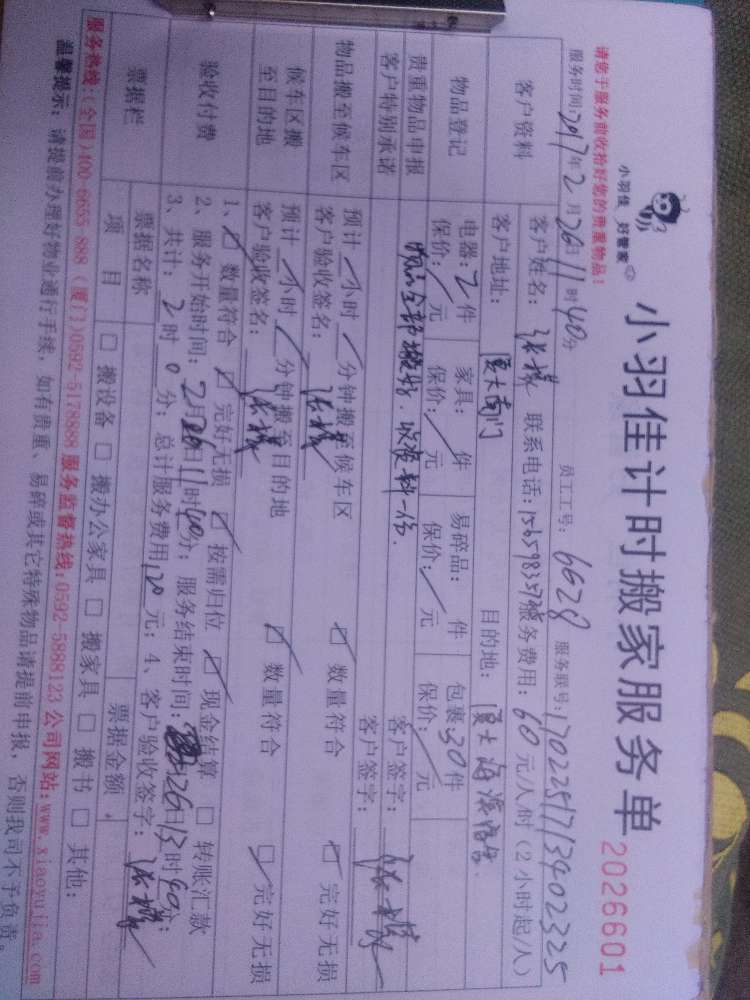 小羽佳 好管家
小羽佳计时搬家服务单
2026601
请您于服务前收拾好您的贵重物品!
服务时间:2017年2月26日11时40分 员工工号: 6628 服务联号:17022517113402325
客户资料
客户姓名: 联系电话: 服务费用: 60元/人/时(2小时起/人)
客户地址: 厦大南门 目的地: 厦大海滨宿舍
物品登记
电器:2件 家具: 件 易碎品: 件 包裹:30件
保价:/元 保价:/元 保价:/元 保价:/元
贵重物品申报 客户签字:
客户特别承诺 客户签字:
物品搬至候车区
预计/小时/分钟搬至候车区 ☑ 数量符合 ☑ 完好无损
客户验收签名:
候车区搬至目的地
预计/小时/分钟搬至目的地 ☑ 数量符合 ☑ 完好无损
客户验收签名:
验收付费
1、☑ 数量符合 ☑ 完好无损 ☑ 按需归位 ☑ 现金结算 □ 转账汇款
2、服务开始时间:2月26日11时40分; 服务结束时间: 月26日13时40分;
3、共计:2时0分; 总计服务费用120元; 4、客户验收签字:
票据栏
票据名称 票据金额
项 目 □ 搬设备 □ 搬办公家具 □ 搬家具 □ 搬书 □ 其他:
服务热线:(全国)400-6655-888 (厦门)0592-5178888 服务监督热线:0592-5888123 公司网站:www.xiaoyujia.com
温馨提示:请提前办理好物业通行手续,如有贵重、易碎或其它特殊物品请提前申报,否则我司不予负责。